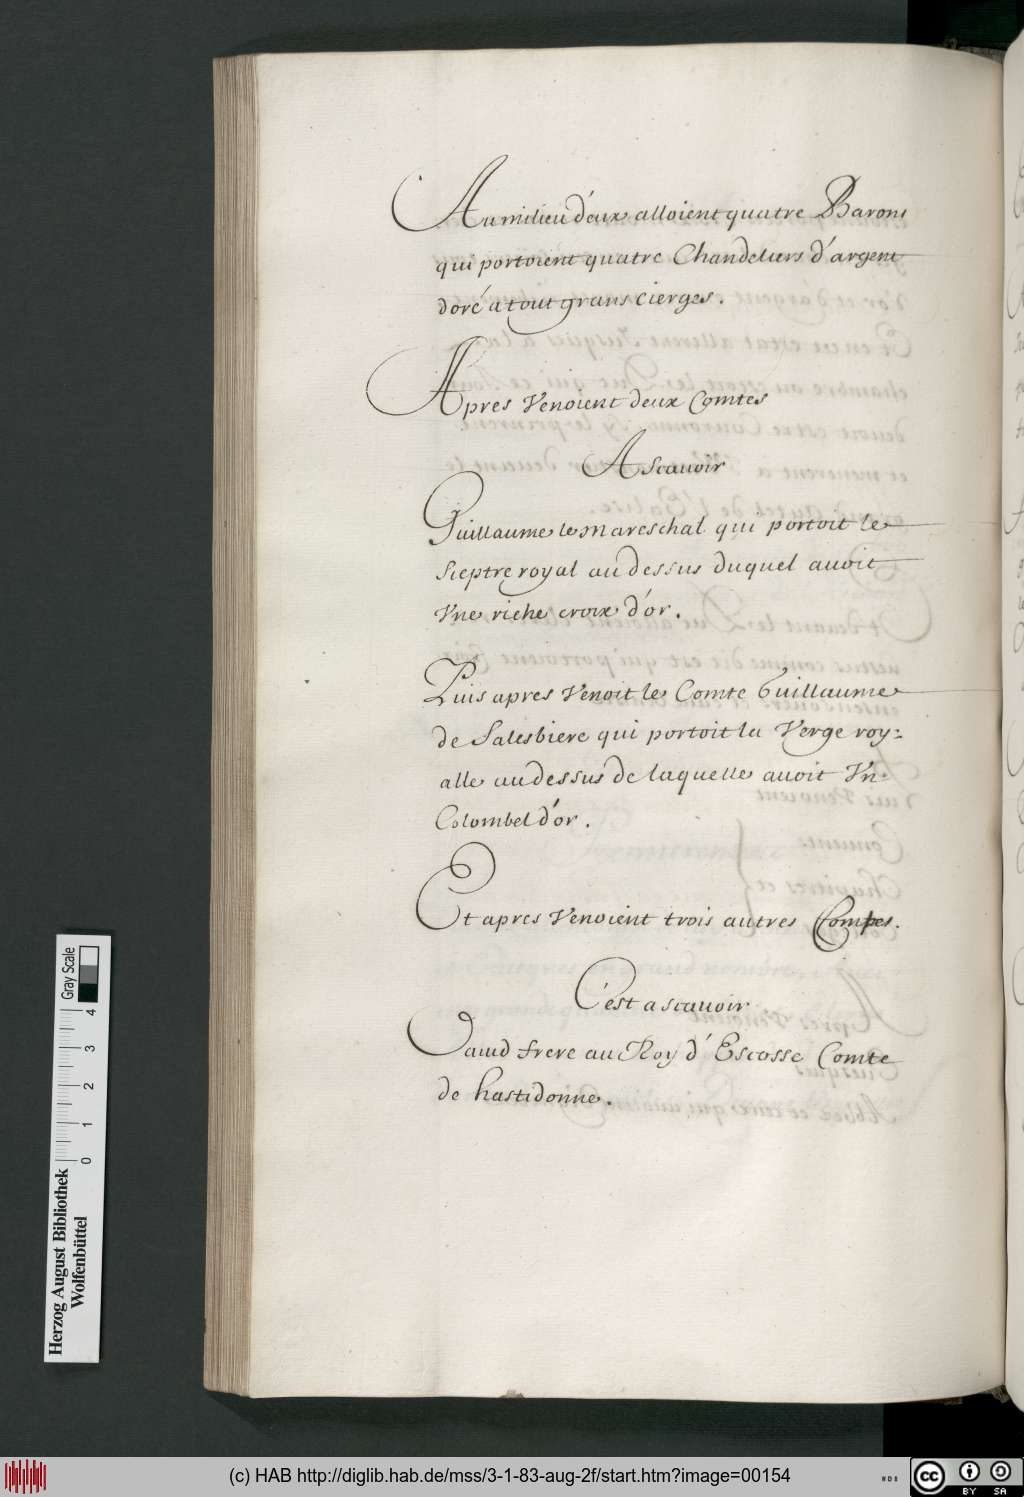 Au milieu d'eux alloient quatre Barons
qui portoient quatre Chandeliers d'argent
doré a tout grans cierges.
Apres Venoient deux Comtes
A scauoir
Guillaume le mareschal qui portoit le
Sceptre royal au dessus duquel auoit
Vne riche croix d'or.
Puis apres Venoit le Comte Guillaume
de Salesbiere qui portoit la Verge roy=
alle au dessus de laquelle auoit Vn
Colombel d'or.
Et apres Venoient trois autres Comtes.
C'est a scauoir
Dauid frere au Roy d'Escosse Comte
de hastidonne.
Herzog August Bibliothek
Wolfenbüttel
0 1 2 3 4
Gray Scale
(c) HAB http://diglib.hab.de/mss/3-1-83-aug-2f/start.htm?image=00154
cc BY SA